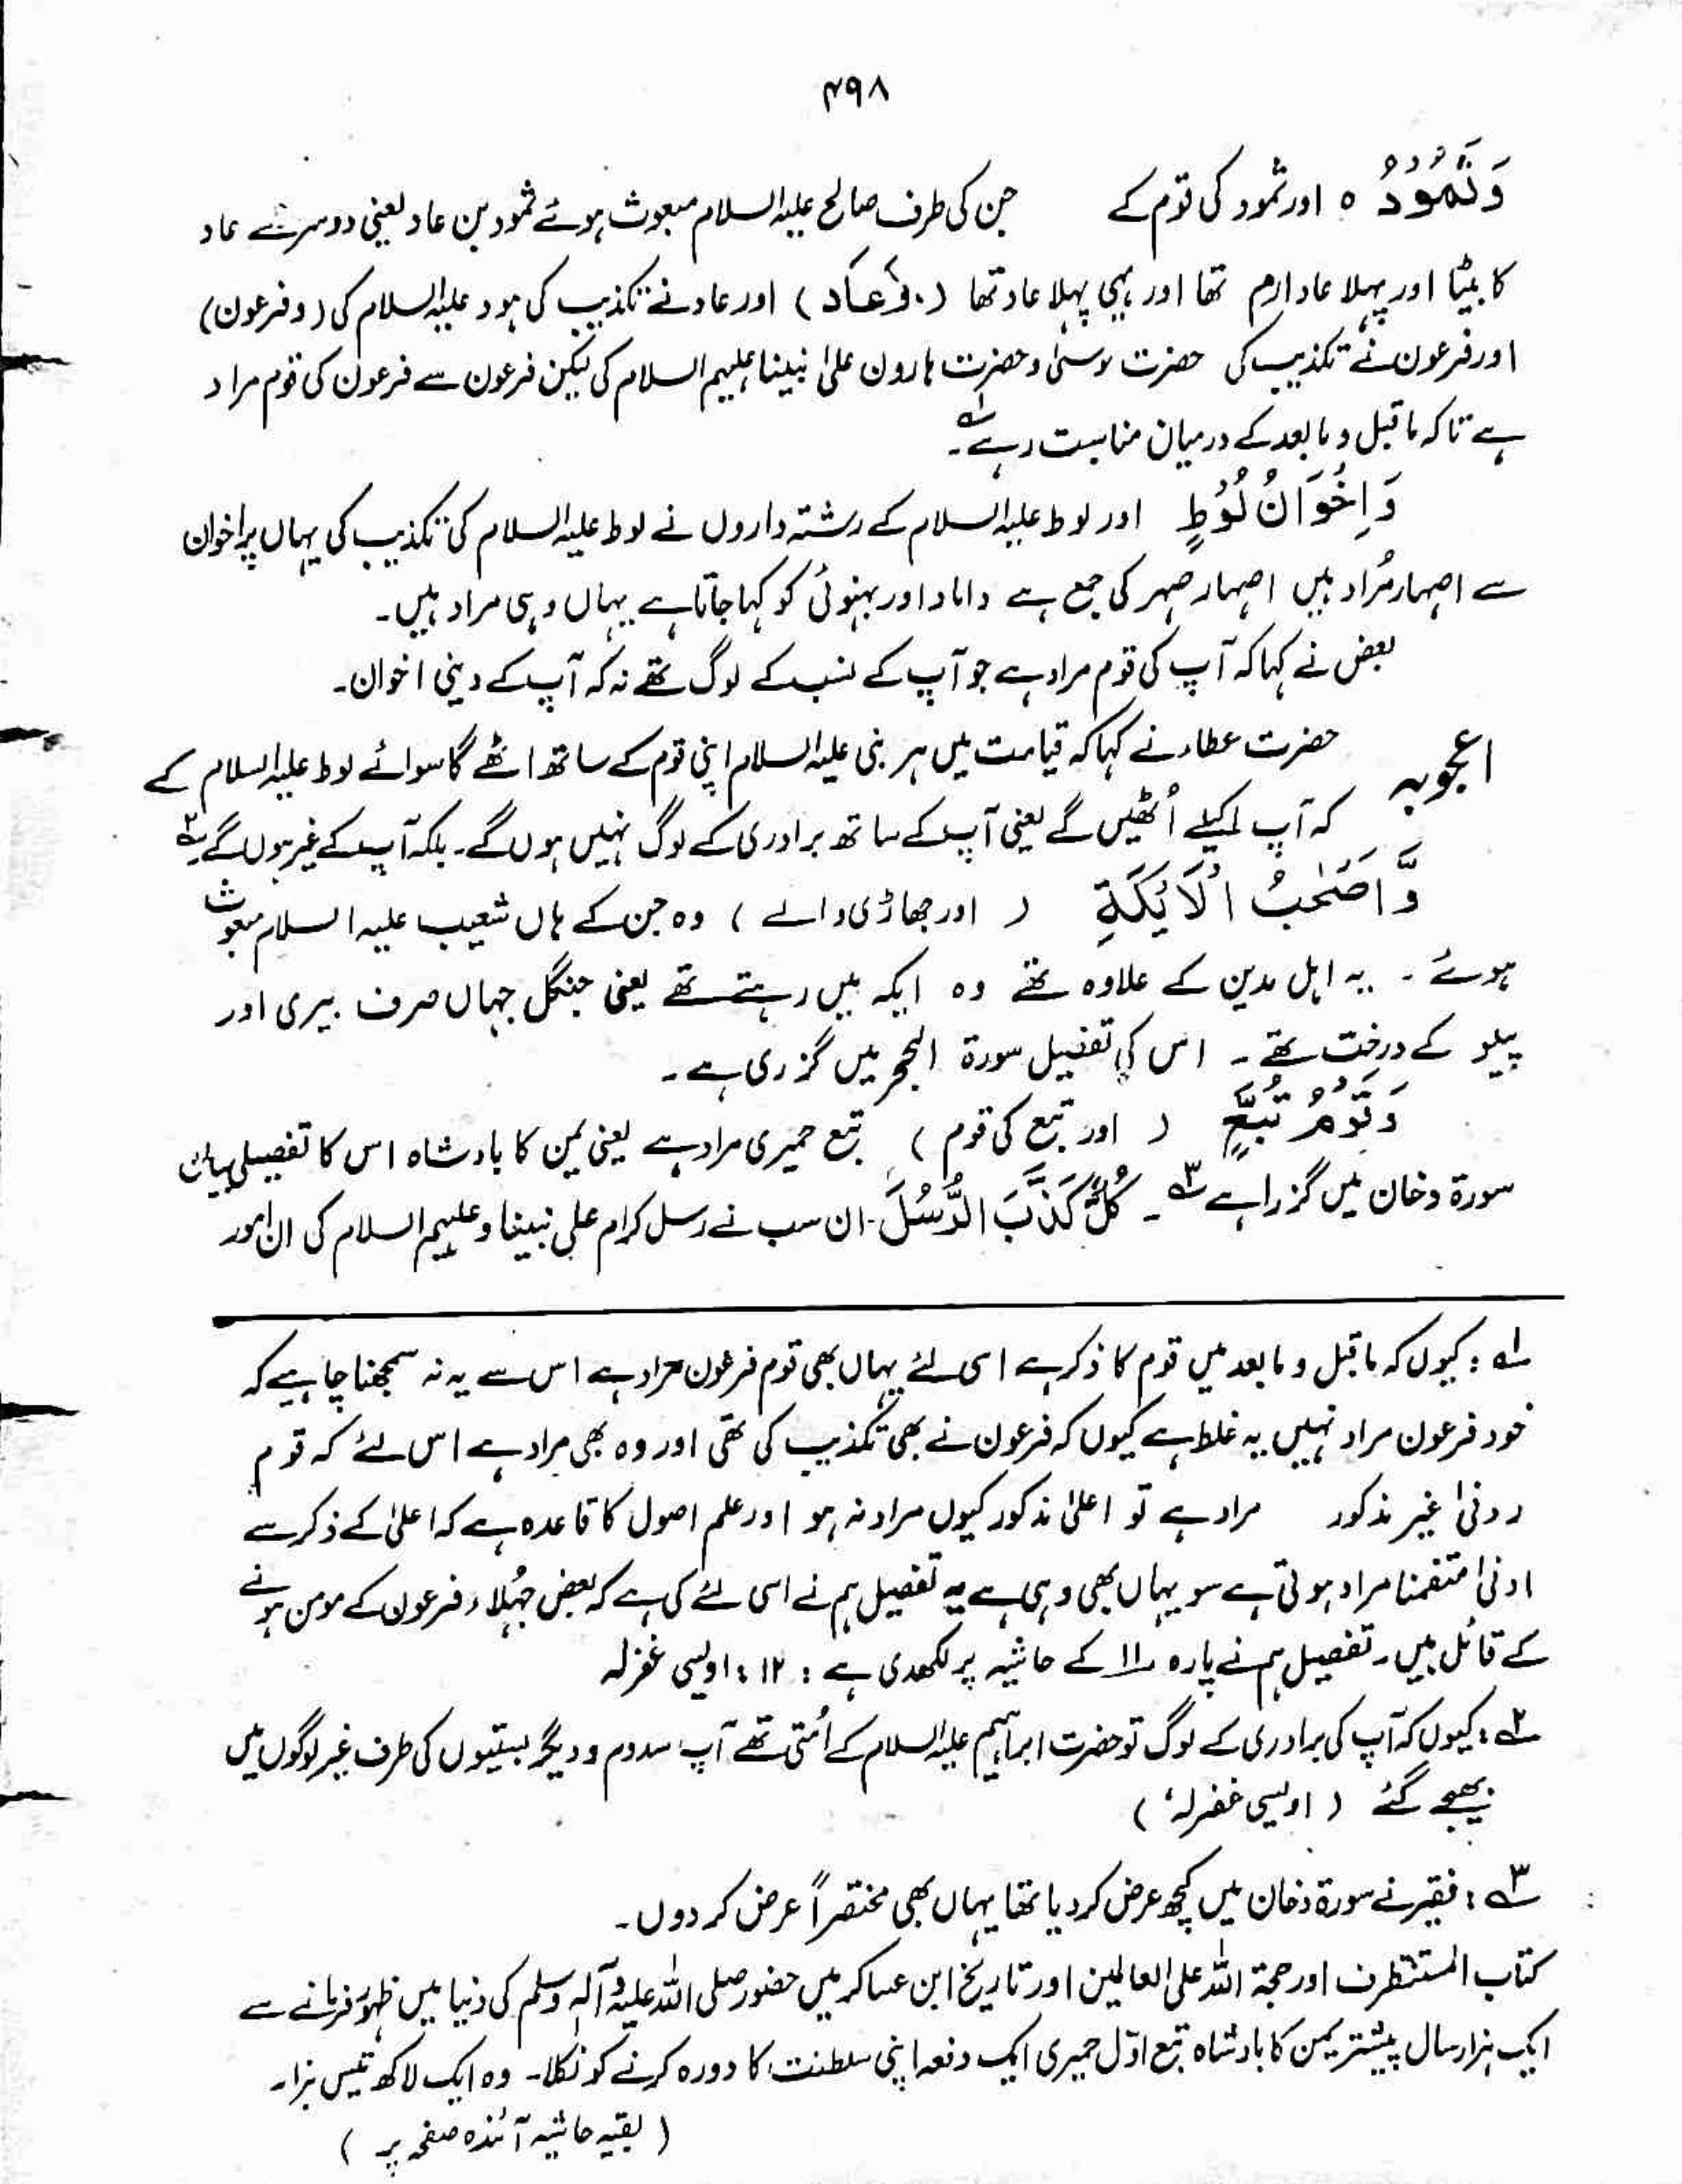 ۴۹۸
وَثَمُوْدُ ه اور ثمود کی قوم کے جن کی طرف صالح علیہ السلام مبعوث ہوئے ثمود بن عاد یعنی دوسرے عاد
کا بیٹا اور پہلا عاد ارم تھا اور یہی پہلا عاد تھا (وَعَاد) اور عاد نے تکذیب کی ہود علیہ السلام کی (وفرعون)
اور فرعون نے تکذیب کی حضرت موسیٰ و حضرت ہارون علیٰ نبینا علیہم السلام کی لیکن فرعون سے فرعون کی قوم مراد
ہے تاکہ ماقبل و مابعد کے درمیان مناسبت رہے۱؎۔
وَاِخْوَانُ لُوْطٍ اور لوط علیہ السلام کے رشتہ داروں نے لوط علیہ السلام کی تکذیب کی یہاں پر اخوان
سے اصہار مُراد ہیں اصہار صہر کی جمع ہے داماد اور بہنوئی کو کہا جاتا ہے یہاں وہی مراد ہیں۔
بعض نے کہا کہ آپ کی قوم مراد ہے جو آپ کے نسب کے لوگ تھے نہ کہ آپ کے دینی اخوان۔
اعجوبہ حضرت عطاء نے کہا کہ قیامت میں ہر نبی علیہ السلام اپنی قوم کے ساتھ اٹھے گا سوائے لوط علیہ السلام کے
کہ آپ اکیلے اُٹھیں گے یعنی آپ کے ساتھ برادری کے لوگ نہیں ہوں گے۔ بلکہ آپ کے غیر ہوں گے۲؎
وَّاَصْحٰبُ الْاَيْكَةِ ( اور جھاڑی والے ) وہ جن کے ہاں شعیب علیہ السلام مبعوث
ہوئے ۔ یہ اہل مدین کے علاوہ تھے وہ ایکہ میں رہتے تھے یعنی جنگل جہاں صرف بیری اور
پیلو کے درخت تھے ۔ اس کی تفصیل سورۃ الحجر میں گزری ہے ۔
وَقَوْمُ تُبَّعٍ ( اور تبع کی قوم ) تبع حمیری مراد ہے یعنی یمن کا بادشاہ اس کا تفصیلی بیان
سورۃ دخان میں گزرا ہے۳؎ ۔ كُلٌّ كَذَّبَ الرُّسُلَ ۔ ان سب نے رسل کرام علی نبینا و علیہم السلام کی ان امور
۱؎ : کیوں کہ ماقبل و مابعد میں قوم کا ذکر ہے اسی لئے یہاں بھی قوم فرعون مراد ہے اس سے یہ نہ سمجھنا چاہیے کہ
خود فرعون مراد نہیں یہ غلط ہے کیوں کہ فرعون نے بھی تکذیب کی تھی اور وہ بھی مراد ہے اس لئے کہ قوم
ردنیٰ غیر مذکور مراد ہے تو اعلیٰ مذکور کیوں مراد نہ ہو اور علم اصول کا قاعدہ ہے کہ اعلیٰ کے ذکر سے
ادنیٰ متضمنا مراد ہوتی ہے سو یہاں بھی وہی ہے یہ تفصیل ہم نے اسی لئے کی ہے کہ بعض جہلاء فرعون کے مومن ہونے
کے قائل ہیں۔ تفصیل ہم نے پارہ ۱۱ کے حاشیہ پر لکھدی ہے : ۱۲ : اویسی غفرلہ
۲؎ : کیوں کہ آپ کی برادری کے لوگ تو حضرت ابراہیم علیہ السلام کے اُمتی تھے آپ سدوم و دیگر بستیوں کی طرف غیر لوگوں میں
بھیجے گئے ( اویسی غفرلہٗ )
۳؎ : فقیر نے سورۃ دخان میں کچھ عرض کر دیا تھا یہاں بھی مختصراً عرض کر دوں۔
کتاب المستنظرف اور حجۃ اللہ علی العالمین اور تاریخ ابن عساکر میں حضور صلی اللہ علیہ وآلہٖ وسلم کی دنیا میں ظہور فرمانے سے
ایک ہزار سال پیشتر یمن کا بادشاہ تبع اوّل حمیری ایک دفعہ اپنی سلطنت کا دورہ کرنے کو نکلا۔ وہ ایک لاکھ تیس ہزار۔
( بقیہ حاشیہ آئندہ صفحہ پر )